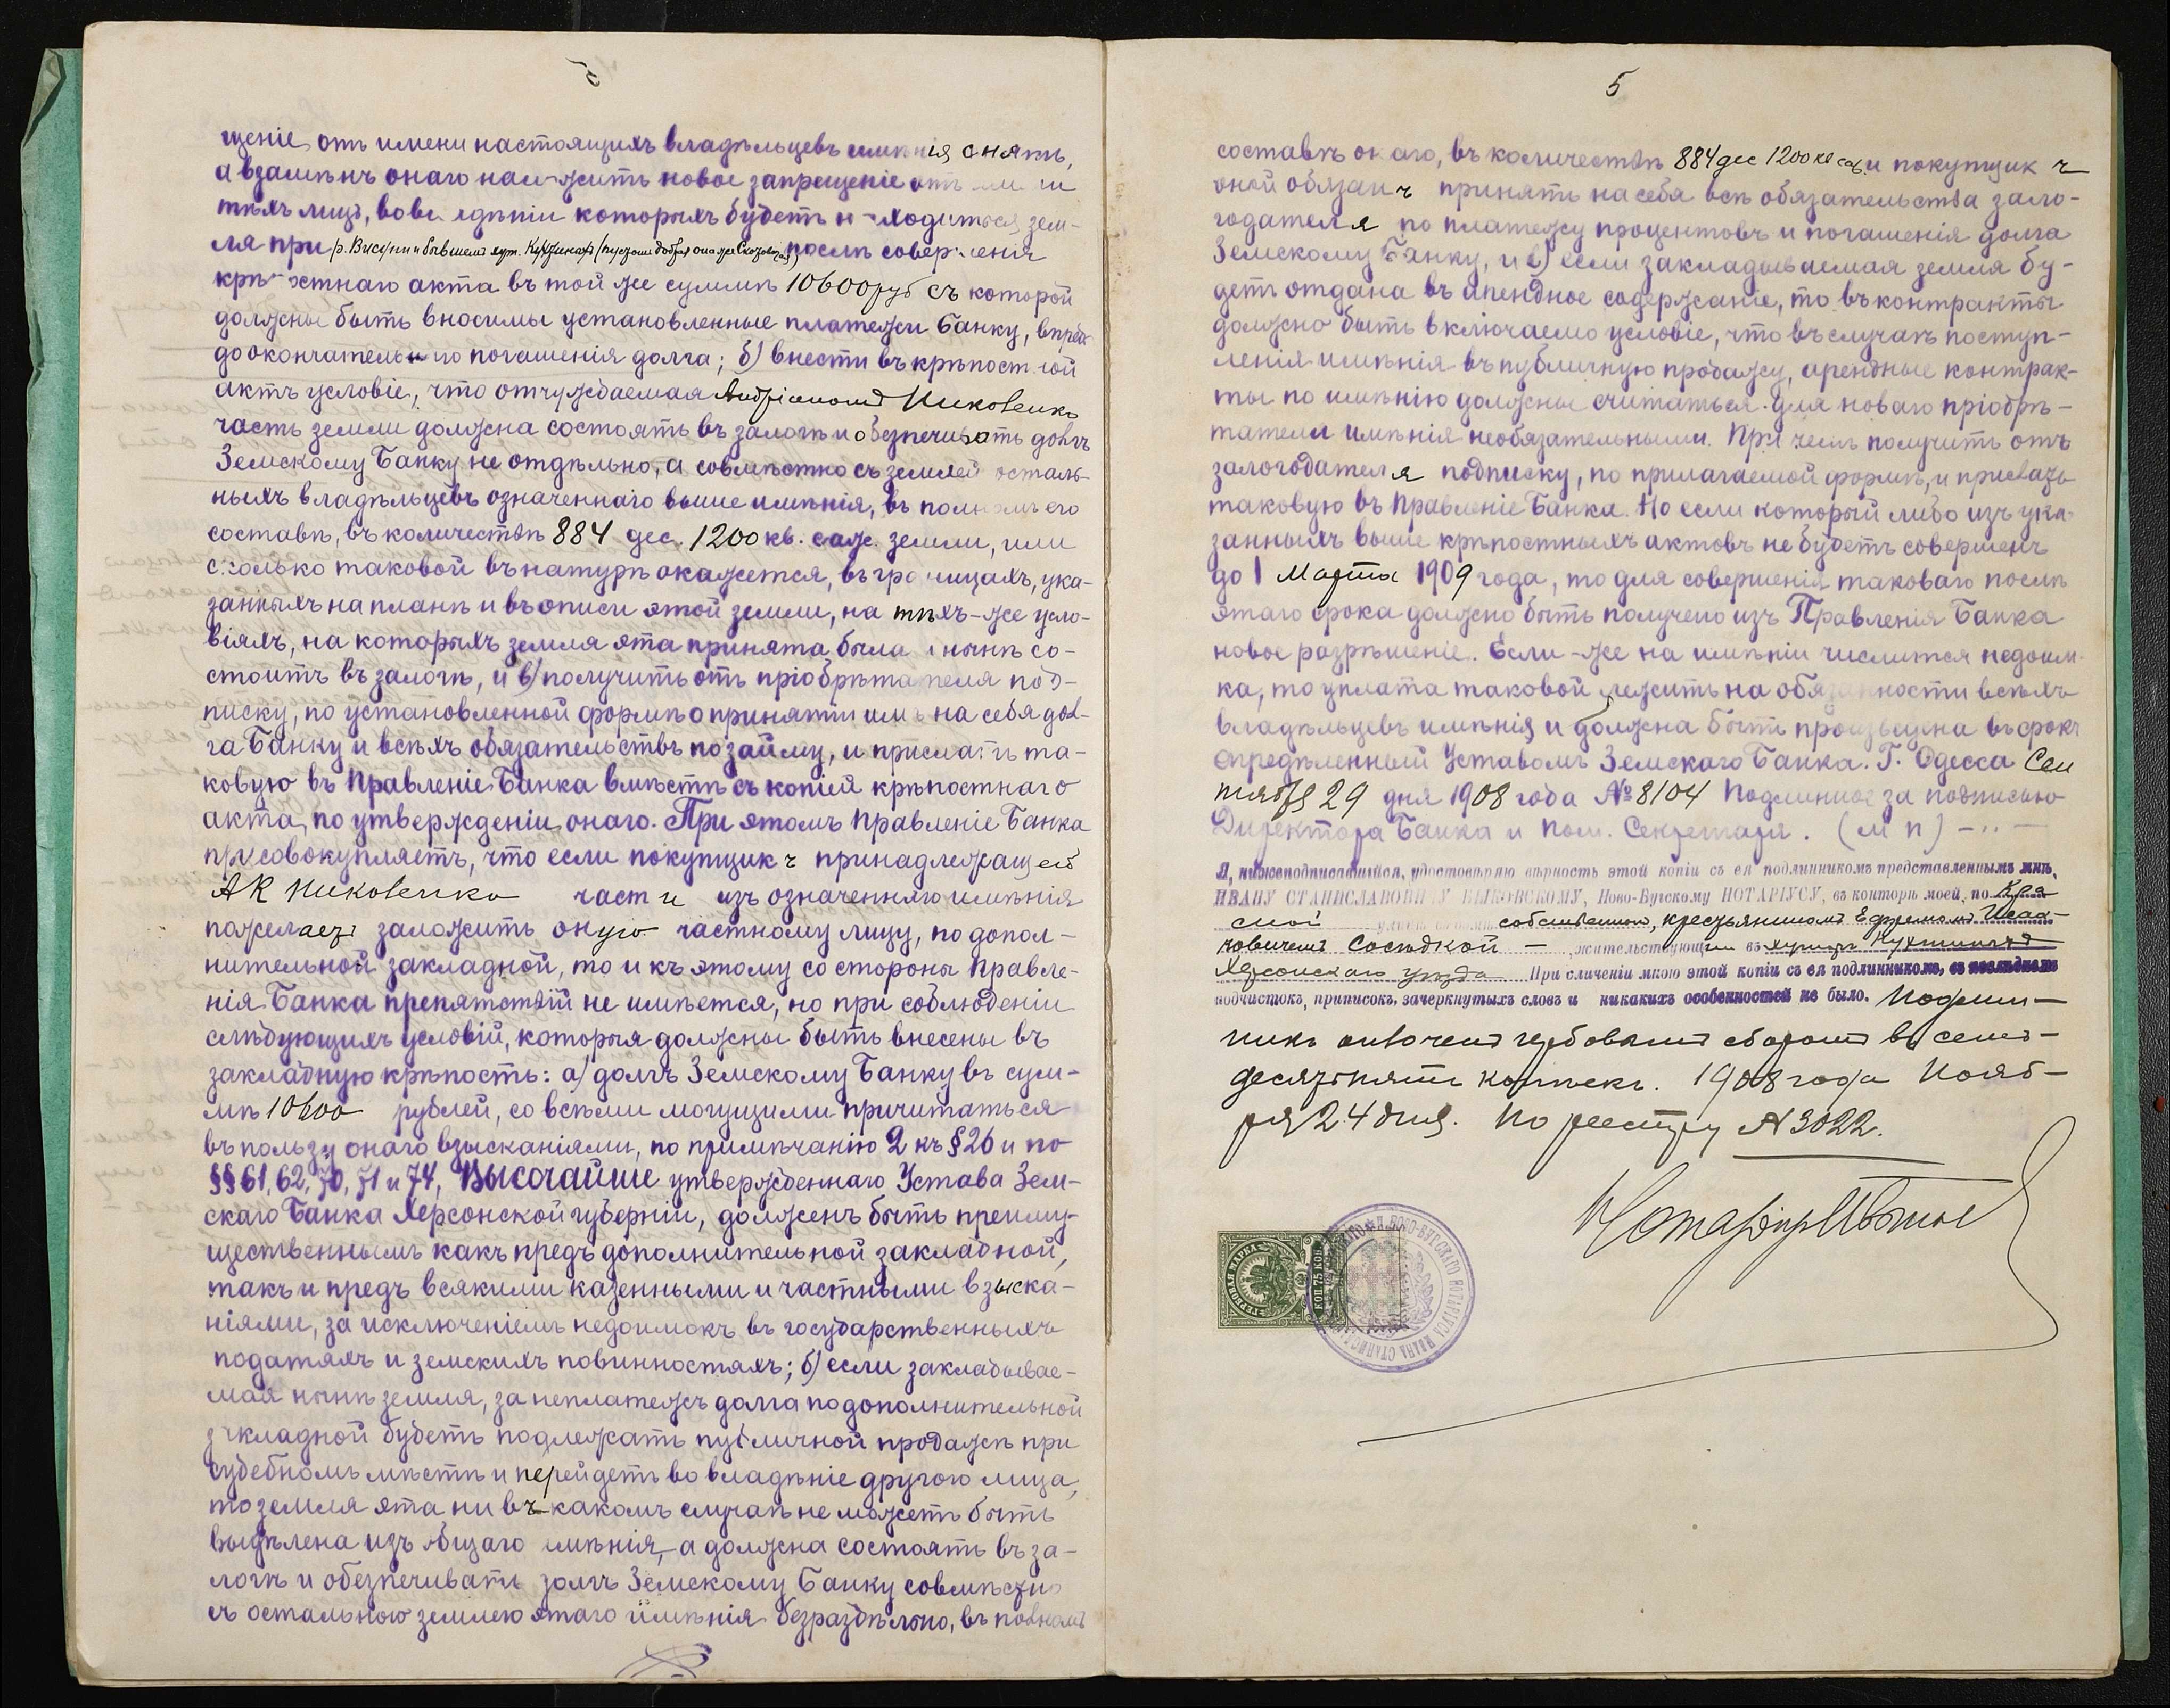 щеніе отъ имени настоящихъ владѣльцевъ имѣнія снять,
а взамѣнъ онаго наложить новое запрещеніе отъ имени
тѣхъ лицъ, во владѣніи которыхъ будетъ находиться зем-
ля при р. Висуни и бывшемъ хут. послѣ совершенія
крѣпостнаго акта въ той же суммѣ 10600 руб съ которой
должны быть вносимы установленные платежи банку, впредь
до окончательнаго погашенія долга; б) внести въ крѣпостной
актъ условіе, что отчуждаемая Андріаномъ Никовенко
часть земли должна состоять въ залогѣ и обезпечивать долгъ
Земскому Банку не отдѣльно, а совмѣстно съ землей осталь-
ныхъ владѣльцевъ означеннаго выше имѣнія, въ полномъ его
составѣ, въ количествѣ 884 дес. 1200 кв. саж. земли, или
сколько таковой въ натурѣ окажется, въ границахъ, ука-
занныхъ на планѣ и въ описи этой земли, на тѣхъ-же усло-
віяхъ, на которыхъ земля эта принята была и нынѣ со-
стоитъ въ залогѣ, и в) получить отъ пріобрѣтателя под-
писку, по установленной формѣ о принятіи имъ на себя дол-
га Банку и всѣхъ обязательствъ по займу, и прислать та-
ковую въ Правленіе Банка вмѣстѣ съ копіей крѣпостнаго
акта, по утвержденіи онаго. При этомъ Правленіе Банка
присовокупляетъ, что если покупщикъ принадлежащей
АК Никовенко части изъ означеннаго имѣнія
пожелаетъ заложить оную частному лицу, по допол-
нительной закладной, то и къ этому со стороны Правле-
нія Банка препятствій не имѣется, но при соблюденіи
слѣдующихъ условій, которыя должны быть внесены въ
закладную крѣпость: а) долгъ Земскому Банку въ сум-
мѣ 10600 рублей, со всѣми могущими причитаться
въ пользу онаго взысканіями, по примѣчанію 2 къ § 26 и по
§§ 61, 62, 70, 71 и 74, Высочайше утвержденнаго Устава Зем-
скаго Банка Херсонской губерніи, долженъ быть преиму-
щественнымъ какъ предъ дополнительной закладной,
такъ и предъ всякими казенными и частными взыска-
ніями, за исключеніемъ недоимокъ въ государственныхъ
податяхъ и земскихъ повинностяхъ; б) если закладывае-
мая нынѣ земля, за неплатежъ долга по дополнительной
закладной будетъ подлежать публичной продажѣ при
судебномъ мѣстѣ и перейдетъ во владѣніе другого лица,
то земля эта ни въ какомъ случаѣ не можетъ быть
выдѣлена изъ общаго имѣнія, а должна состоять въ за-
логѣ и обезпечивать долгъ Земскому Банку совмѣстно
съ остальною землею этаго имѣнія безраздѣльно, въ полномъ
5
составѣ онаго, въ количествѣ 884 дес 1200 кв саж. и покупщикъ
оной обязанъ принять на себя всѣ обязательства зало-
годателя по платежу процентовъ и погашенія долга
Земскому Банку, и в) если закладываемая земля бу-
детъ отдана въ арендное содержаніе, то въ контракты
должно быть включаемо условіе, что въ случаѣ поступ-
ленія имѣнія въ публичную продажу, арендные контрак-
ты по имѣнію должны считаться для новаго пріобрѣ-
тателя имѣнія необязательными. При чемъ получить отъ
залогодателя подписку, по прилагаемой формѣ, и прислать
таковую въ Правленіе Банка. Но если который либо изъ ука-
занныхъ выше крѣпостныхъ актовъ не будетъ совершенъ
до 1 Марта 1909 года, то для совершенія таковаго послѣ
этаго срока должно быть получено изъ Правленія Банка
новое разрѣшеніе. Если-же на имѣніи числится недоим-
ка, то уплата таковой лежитъ на обязанности всѣхъ
владѣльцевъ имѣнія и должна быть произведена въ срокъ
опредѣленный Уставомъ Земскаго Банка. Г. Одесса Сен
тября 29 дня 1908 года № 8104 Подлинное за подписью
Директора Банка и Пом. Секретаря. (м п) -"-
Я, нижеподписавшійся, удостовѣряю вѣрность этой копіи съ ея подлинникомъ представленнымъ мнѣ,
ИВАНУ СТАНИСЛАВОВИЧУ БЫКОВСКОМУ, Ново-Бугскому НОТАРІУСУ, въ конторѣ моей, по Кра
сной собственномъ, крестьяниномъ Ефремомъ Исаа-
ковичемъ Сосѣдкой — жительствующимъ въ хуторѣ
Херсонскаго уѣзда. При сличеніи мною этой копіи съ ея подлинникомъ, въ послѣднемъ
подчистокъ, приписокъ, зачеркнутыхъ словъ и никакихъ особенностей не было. Подлин-
никъ оплоченъ гербовымъ сборомъ въ семь-
десятъ пять копѣекъ. 1908 года Нояб-
ря 24 дня. По реестру № 3022.
Нотаріусъ
ГЕРБОВАЯ МАРКА
75 КОП
НОВО-БУГСКАГО НОТАРІУСА ИВАНА СТАНИС